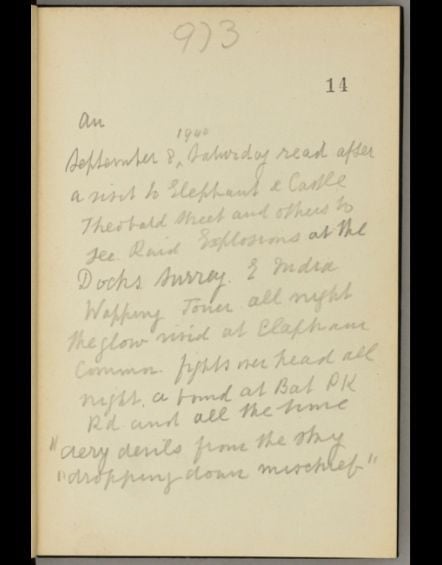 973
14
an
1940
September 8, Saturday read after
a visit to Elephant & Castle
Theobald Street and others to
see Raid Explosions at the
Docks Surrey. E India
Wapping Tower all night
the glow vivid at Clapham
Common. fights over head all
night. a bomb at Bat PK
Rd and all the time
"aery devils from the sky
"dropping down mischief"